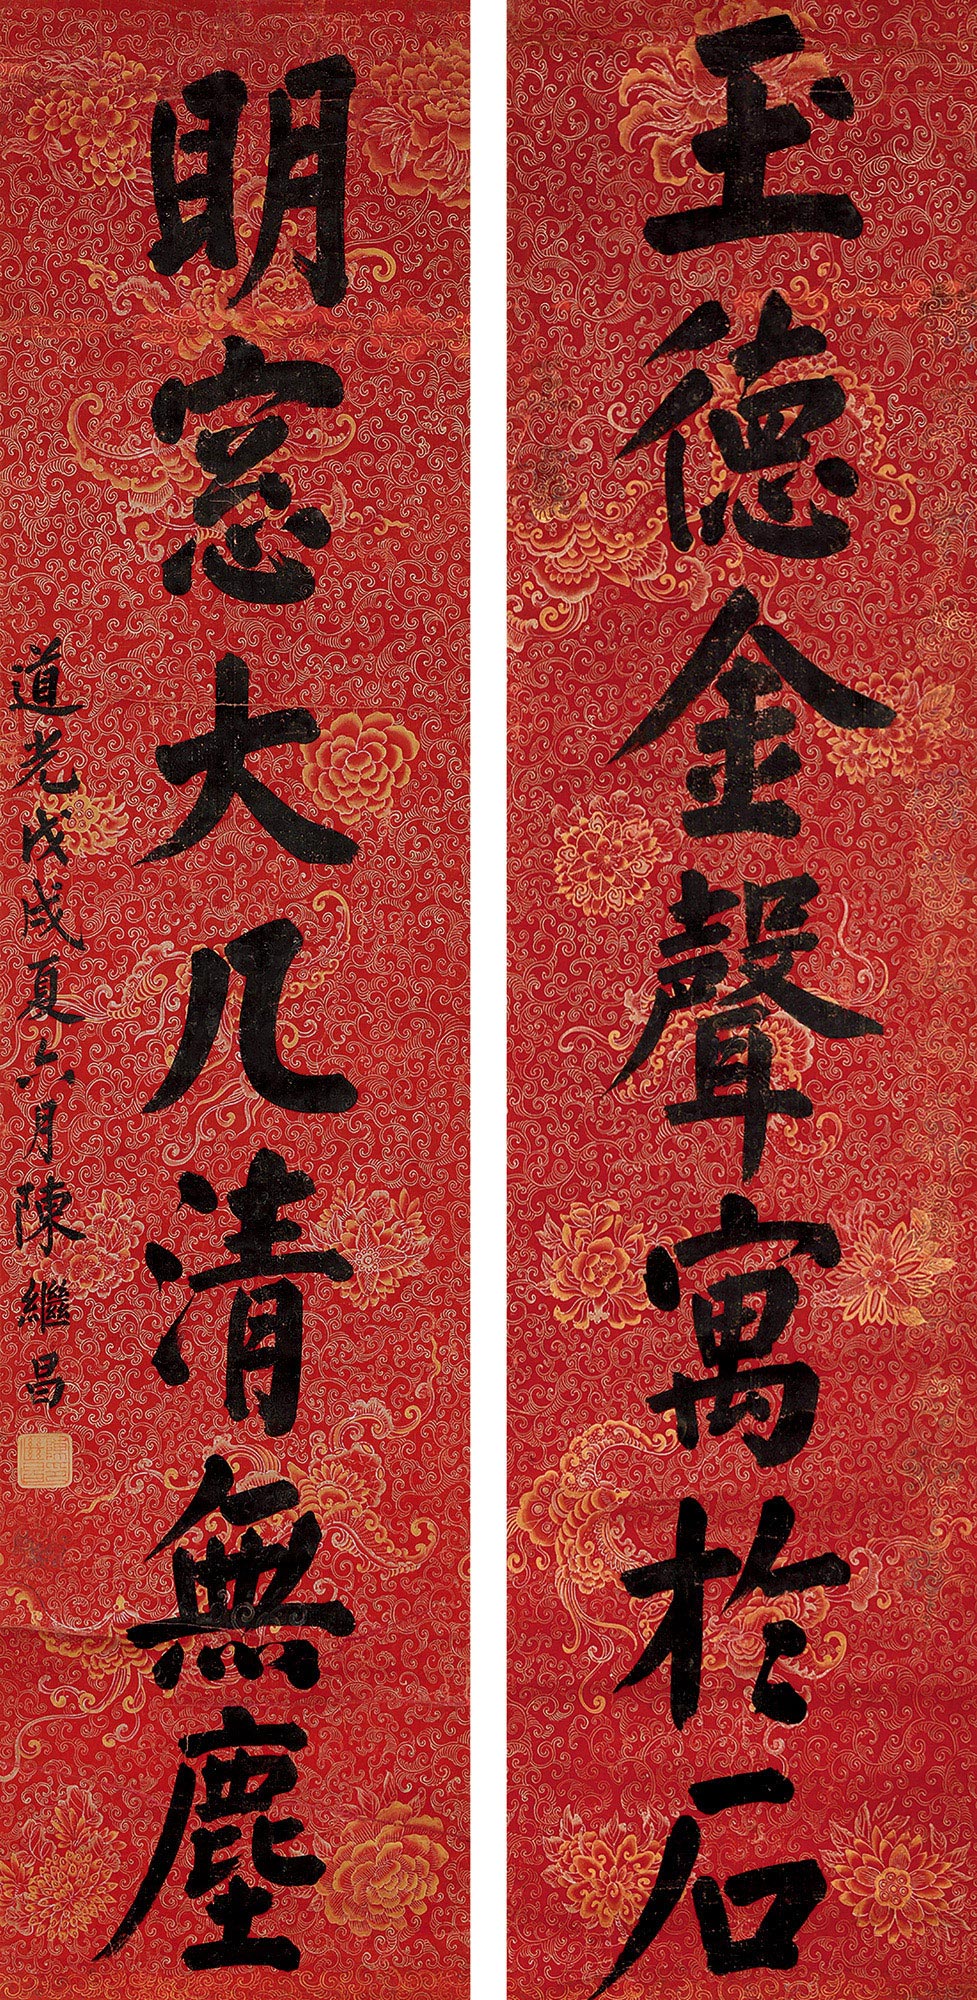 玉德金聲寓於石
明窓大几清無塵
道光戊戌夏六月陳繼昌